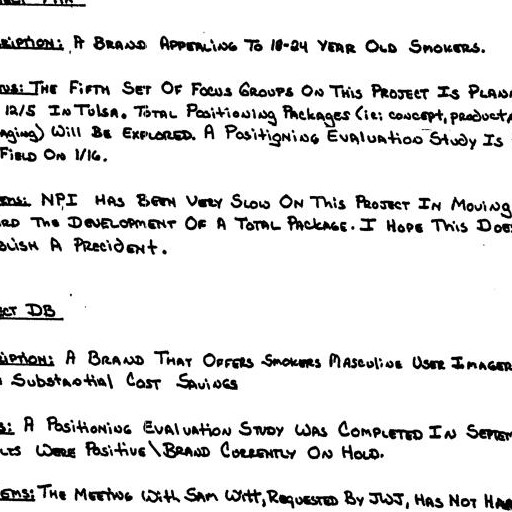 RIPTION: A BRAND APPEALING TO 18-24 YEAR OLD SMOKERS.
US: THE FIFTH SET OF FOCUS GROUPS ON THIS PROJECT IS PLAN
12/5 IN TULSA. TOTAL POSITIONING PACKAGES (IE: CONCEPT, PRODUCT,
AGING) WILL BE EXPLORED. A POSITIONING EVALUATION STUDY IS
FIELD ON 1/16.
EMS: NPI HAS BEEN VERY SLOW ON THIS PROJECT IN MOVING
RD THE DEVELOPMENT OF A TOTAL PACKAGE. I HOPE THIS DOES
BLISH A PRECIDENT.
ECT DB
RIPTION: A BRAND THAT OFFERS SMOKERS MASCULINE USER IMAGER
SUBSTANTIAL COST SAVINGS
S: A POSITIONING EVALUATION STUDY WAS COMPLETED IN SEPTEM
LTS WERE POSITIVE\BRAND CURRENTLY ON HOLD.
EMS: THE MEETING WITH SAM WITT, REQUESTED BY JWJ, HAS NOT HA